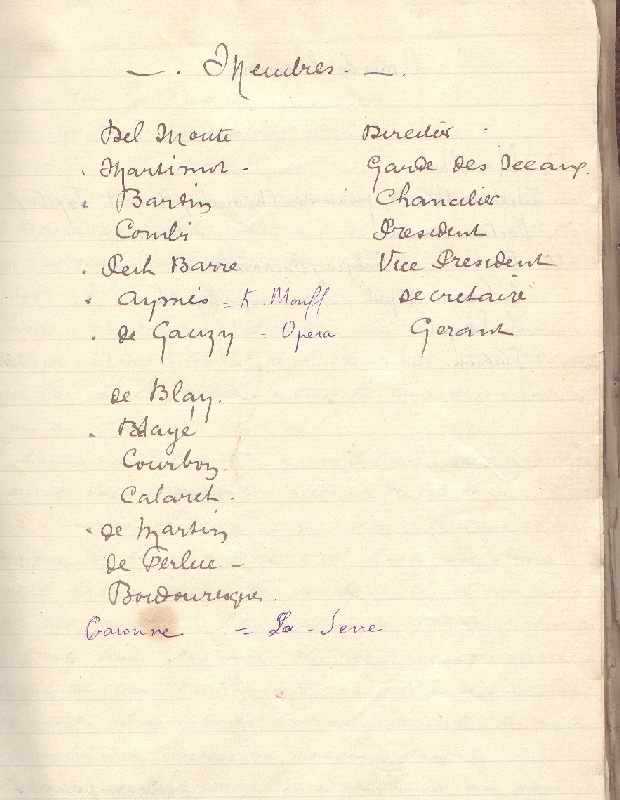 — . Membres. — .
Del Monte Director
. Martimor - Garde des Sceaux
. Bardin Chancelier
Combi President
. Pech Barre Vice President
. Aymés = K Mouff Secretaire
. de Gauzy = Opera Gerant
de Blay.
. Blayé
Courbon
Calaret.
. de Martin
de Ferluc -
Bordouresque.
Garonne = La